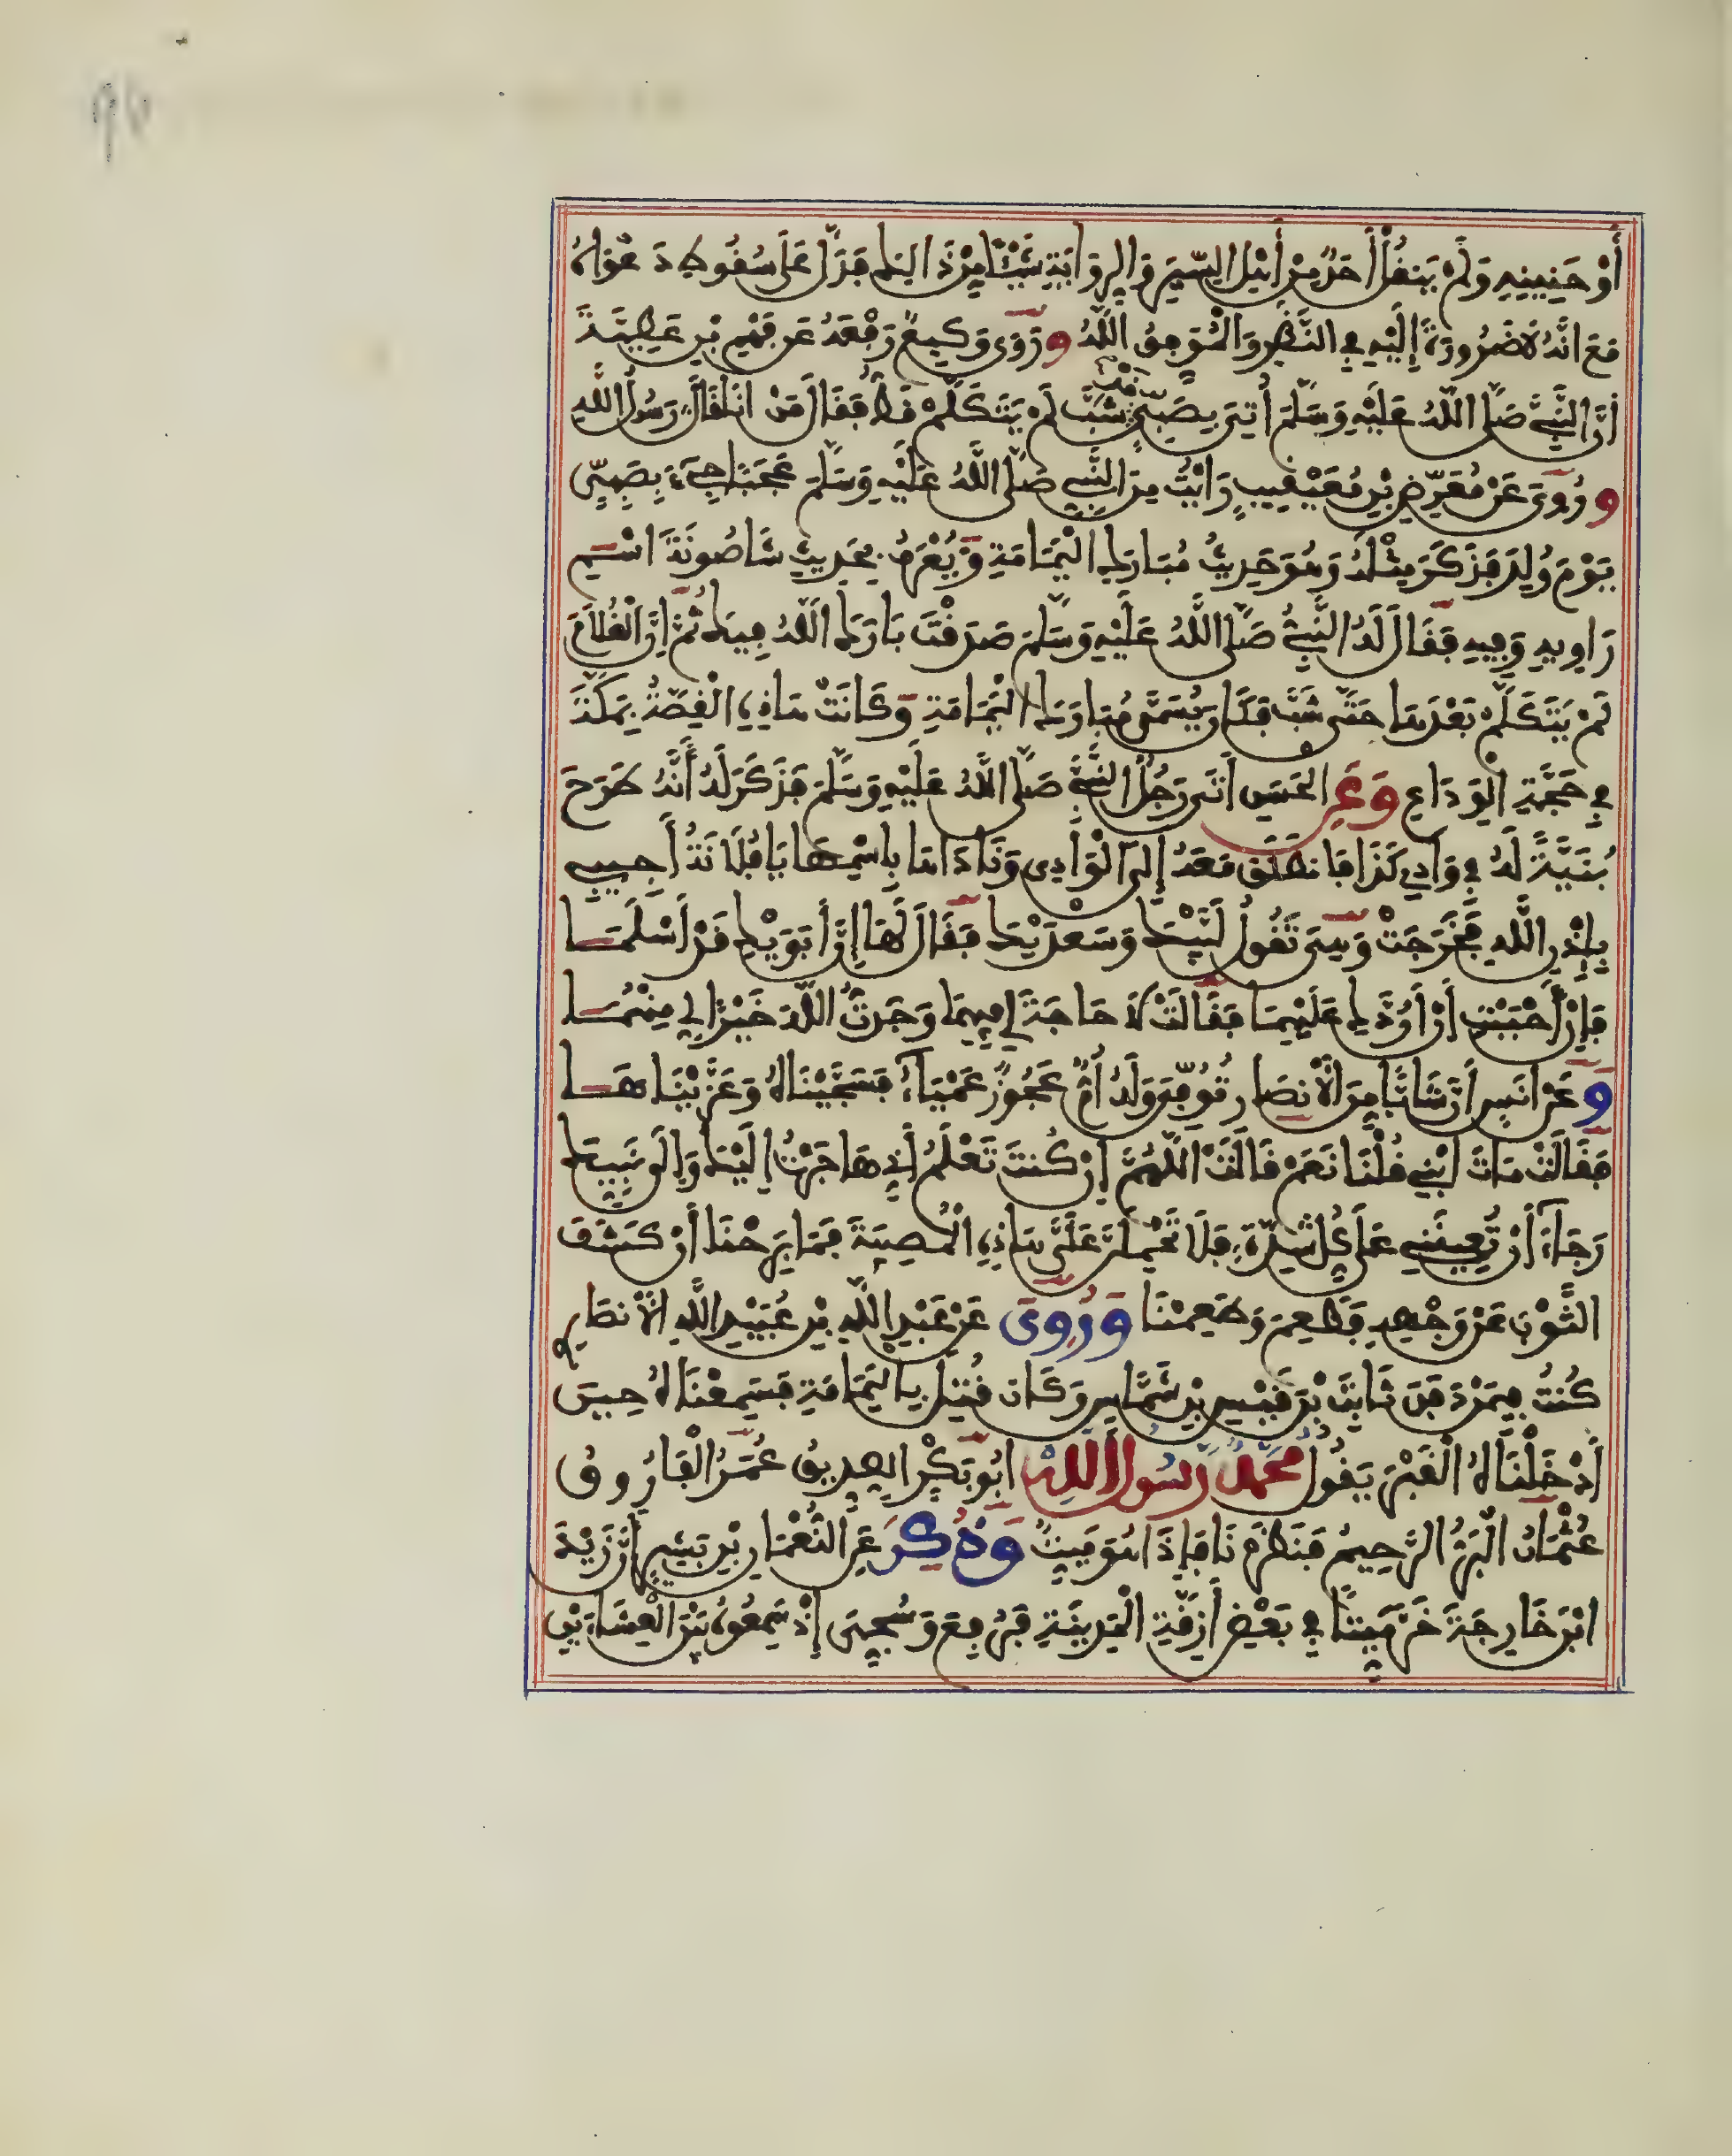 أَوْ حَنِينِهِ وَلَمْ يَنْقُلْ أَحَدٌ مِنْ أَهْلِ السِّيَرِ وَالرِّوَايَةِ شَيْئًا مِنْ ذَالِكَ فَدَلَّ عَلَى سُقُوطِ دَعْوَاهُ
مَعَ أَنَّهُ لَا ضَرُورَةَ إِلَيْهِ فِي النَّظَرِ وَالْمُوَفِّقُ اللَّهُ وَرَوَى وَكِيعٌ رَفَعَهُ عَنْ فَهْدِ بْنِ عَطِيَّةَ
أَنَّ النَّبِيَّ صَلَّى اللَّهُ عَلَيْهِ وَسَلَّمَ أُتِيَ بِصَبِيٍّ قَدْ شَبَّ لَمْ يَتَكَلَّمْ قَطُّ فَقَالَ مَنْ أَنَا فَقَالَ رَسُولُ اللَّهِ
وَرُوِيَ عَنْ مُعَرِّضِ بْنِ مُعَيْقِيبٍ رَأَيْتُ مِنَ النَّبِيِّ صَلَّى اللَّهُ عَلَيْهِ وَسَلَّمَ عَجَبًا جِيءَ بِصَبِيٍّ
يَوْمَ وُلِدَ فَذَكَرَ مِثْلَهُ وَهُوَ حَدِيثُ مُبَارَكِ الْيَمَامَةِ وَيُعْرَفُ بِحَدِيثِ شَاصُونَةَ اسْمِ
رَاوِيهِ وَفِيهِ فَقَالَ لَهُ النَّبِيُّ صَلَّى اللَّهُ عَلَيْهِ وَسَلَّمَ صَدَقْتَ بَارَكَ اللَّهُ فِيكَ ثُمَّ إِنَّ الْغُلَامَ
لَمْ يَتَكَلَّمْ بَعْدَهَا حَتَّى شَبَّ فَكَانَ يُسَمَّى مُبَارَكَ الْيَمَامَةِ وَكَانَتْ هَاذِهِ الْقِصَّةُ بِمَكَّةَ
فِي حَجَّةِ الْوَدَاعِ وَعَنِ الْحَسَنِ أَتَى رَجُلٌ النَّبِيَّ صَلَّى اللَّهُ عَلَيْهِ وَسَلَّمَ فَذَكَرَ لَهُ أَنَّهُ طَرَحَ
بُنَيَّةً لَهُ فِي وَادِي كَذَا فَانْطَلَقَ مَعَهُ إِلَى الْوَادِي وَنَادَاهَا بِاسْمِهَا يَا فُلَانَةُ أَجِيبِي
بِإِذْنِ اللَّهِ فَخَرَجَتْ وَهِيَ تَقُولُ لَبَّيْكَ وَسَعْدَيْكَ فَقَالَ لَهَا إِنَّ أَبَوَيْكِ قَدْ أَسْلَمَا
فَإِنْ أَحْبَبْتِ أَنْ أَرُدَّكِ عَلَيْهِمَا فَقَالَتْ لَا حَاجَةَ لِي فِيهِمَا وَجَدتُّ اللَّهَ خَيْرًا لِي مِنْهُمَا
وَعَنْ أَنَسٍ أَنَّ شَابًّا مِنَ الْأَنْصَارِ تُوُفِّيَ وَلَهُ أُمٌّ عَجُوزٌ عَمْيَاءُ فَسَجَّيْنَاهُ وَعَزَّيْنَاهَا
فَقَالَتْ مَاتَ ابْنِي قُلْنَا نَعَمْ قَالَتْ اللَّهُمَّ إِنْ كُنْتَ تَعْلَمُ أَنِّي هَاجَرْتُ إِلَيْكَ وَإِلَى نَبِيِّكَ
رَجَاءَ أَنْ تُعِينَنِي عَلَى كُلِّ شِدَّةٍ فَلَا تَحْمِلَنَّ عَلَيَّ هَاذِهِ الْمُصِيبَةَ فَمَا بَرِحْنَا أَنْ كَشَفَ
الثَّوْبَ عَنْ وَجْهِهِ فَطَعِمَ وَطَعِمْنَا وَرُوِيَ عَنْ عَبْدِ اللَّهِ بْنِ عُبَيْدِ اللَّهِ الْأَنْصَارِي
كُنْتُ فِيمَنْ دَفَنَ ثَابِتَ بْنَ قَيْسِ بْنِ شَمَّاسٍ وَكَانَ قُتِلَ بِالْيَمَامَةِ فَسَمِعْنَاهُ حِينَ
أَدْخَلْنَاهُ الْقَبْرَ يَقُولُ مُحَمَّدٌ رَسُولُ اللَّهِ أَبُو بَكْرٍ الصِّدِّيقُ عُمَرُ الْفَارُوقُ
عُثْمَانُ الْبَرُّ الرَّحِيمُ فَنَظَرْنَا فَإِذَا هُوَ مَيِّتٌ وَذُكِرَ عَنِ النُّعْمَانِ بْنِ بَشِيرٍ أَنَّ زَيْدَ
ابْنَ خَارِجَةَ خَرَّ مَيِّتًا فِي بَعْضِ أَزِقَّةِ الْمَدِينَةِ فَرُفِعَ وَسُجِّيَ إِذْ سَمِعُوهُ بَيْنَ الْعِشَاءَيْنِ